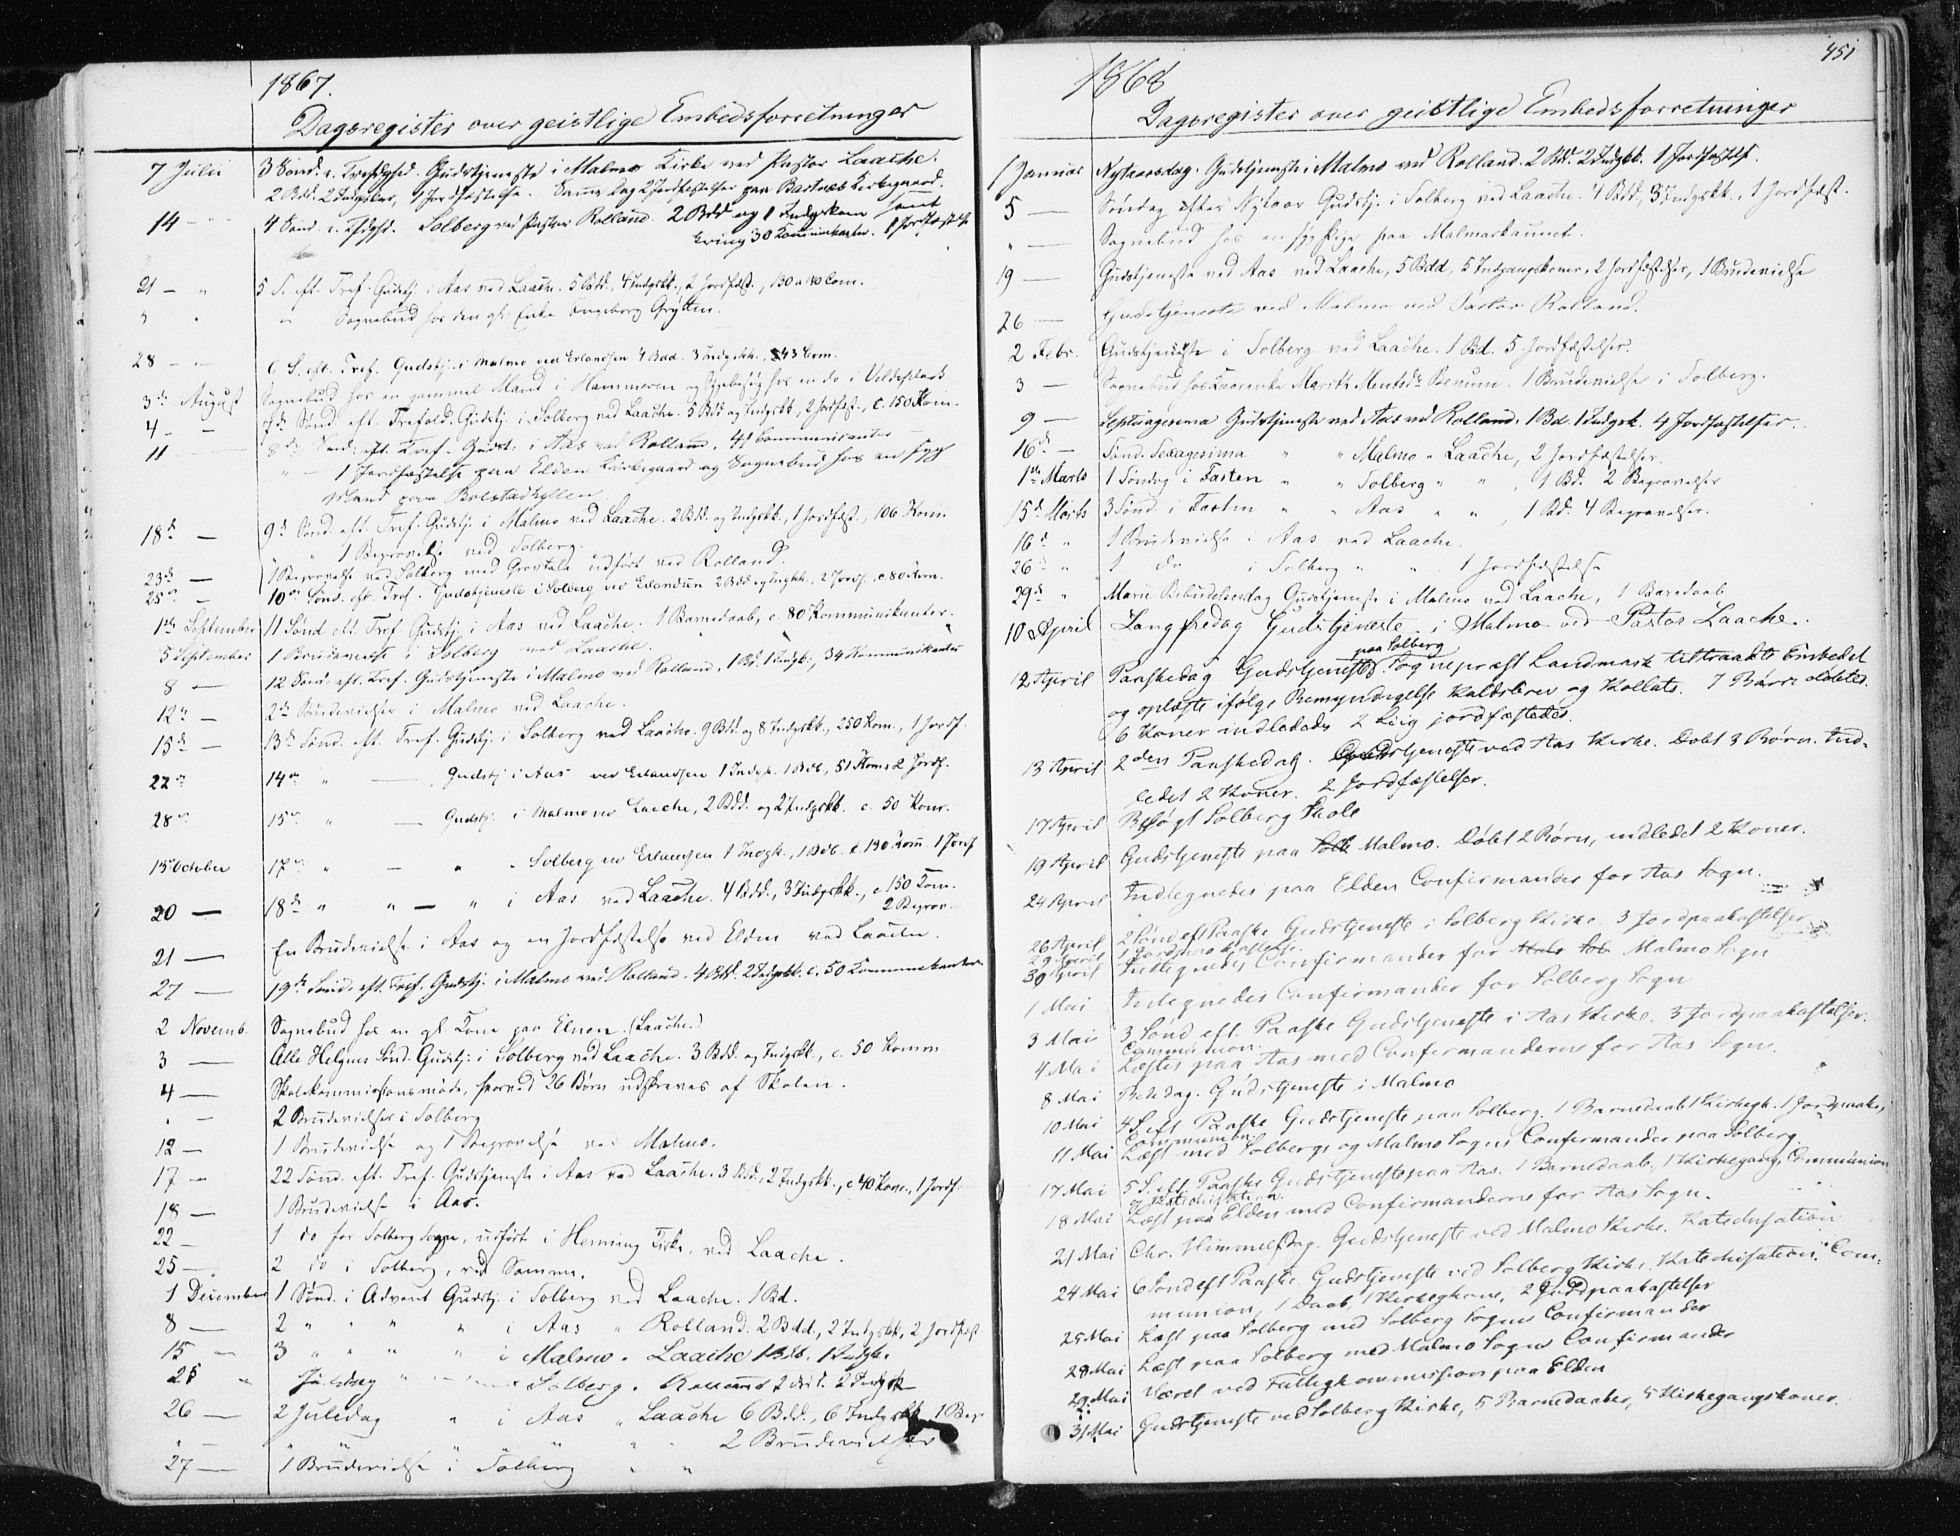 1867.
Dagsregister over geistlige Embedsforretninger
7 Julii 3 Sönd. e. Trefdghd. Gudstjeneste i Malmo Kirke ved Pastor Laache.
2 Bdd. 2 Indgskor, 1 Jordfæstelse. Samme Dag 2 Jordfæstelser paa Bartnæs Kirkegaard.
14 — 4 Sönd. e. Tfdghd. Solberg ved Pastor Rolland. 2 Bdd og 1 Indgskone samt
kring 30 Kommunikanter. 1 Jordfæstelse
21 — " 5 S. eft. Tref. Gudstj. i Aas ved Laache. 5 Bdd., 4 Indgskk., 2 Jordfæst., 130 a 140 Com.
" Sognebud hos den gl. Enke Ingeborg Grÿtten.
28 — 6 S. eft. Tref. Gudstj. i Malmo ved Erlandsen 4 Bdd. 3 Indgskk., 43 Com.
3de August Sognebud hos en gammel Mand i Hammeren og Sygebesøg hos en do i
4 — 7de Sønd eft. Trefold. Gudstj. i Solberg ved Laache. 5 Bdd og Indgskk., 2 Jordfæst., c. 150 Kom.
11 — 8de Sønd. eft. Tref. Gudst. i Aas ved Rolland. 41 Communicanter
" — 1 Jordfæstelse paa Elden Kirkegaard og Sognebud hos en syg
Mand paa Bolestadhyllen.
18de — 9de Sønd. eft. Tref. Gudstj. i Malmo ved Laache. 2 Bdd. og Indgskk., 1 Jordfæst., 106 Kom.
" " 1 Begravelse ved Solberg.
23de — 1 Begravelse ved Solberg med Gravtale udført ved Rolland.
25de — 10de Sønd. eft. Tref. Gudstjeneste i Solberg ved Erlandsen 2 Bdd og Ingkk., 2 Jordf., c. 80 Kom.
1ste September 11 Sønd eft. Tref Gudstj. i Aas ved Laache. 1 Barnedaab, c. 80 Kommunikanter.
5 September 1 Brudevielse i Solberg ved Laache.
8 — 12 Sønd. eft. Tref. Gudstjeneste i Malmo ved Rolland, 1 Bd. 1 Indgk., 34 Kommunikanter
12te — 2de Brudevielser i Malmo ved Laache.
15de — 13de Sønd. eft. Tref. Gudstj. i Solberg ved Laache. 9 Bdd. og 8 Indgskk., 250 Kom., 1 Jordf.
22de 14de " — Gudstj i Aas ved Erlandsen 1 Indgk. 1 Bdb., 51 Kom, 2 Jordf.
28de 15de " — Gudstj. i Malmo ved Laache, 2 Bdd. og 2 Indgskk. c. 50 Kom.
13 October 17de " — " " Solberg ved Erlandsen 1 Indgk., 1 Bdb. c. 130 Kom. 1 Jordf
20 — 18de " " — " i Aas ved Laache. 4 Bdd., 3 Indgskk., c 150 Kom.
2 Begrav.
21 — En Brudevielse i Aas og en Jordfæstelse ved Elden ved Laache.
27 — 19de Sønd. eft. Tref. Gudstj. i Malmo ved Rolland. 4 Bdd. 2 Indgskk. c. 50 Kommunikanter
2 Novemb. Sognebud hos en gl. Kone paa Elnen. (Laache.)
3 — Alle Helgens Sønd. Gudstj. i Solberg ved Laache. 3 Bdd. og Indgskk., c. 50 Komm
4 — Skolekommissionsmöde, hvorved 26 Börn udskreves af Skolen.
" — 2 Brudevielser i Solberg
12 — 1 Brudevielse og 1 Begravelse ved Malmo.
17 — 22 Sønd. eft. Tref. Gudstjeneste i Aas ved Laache. 3 Bdd., 2 Indgskk., c 40 Kom., 1 Jordf.
18 — 1 Brudevielse i Aas.
22 — 1 do for Solberg Sogn, udført i Henning Kirke, ved Laache.
25 — 2 do i Solberg, ved Samme.
1 December 1 Sønd. i Advent Gudstj. i Solberg ved Laache. 1 Bd.
8 — 2 " " " " i Aas " Rolland. 2 Bdd., 2 Indgskk., 2 Jordfæst
15 — 3 " " " " i Malmo. Laache 1 Bdb. 1 Indgk.
25 " Juledag " Solberg. Rolland 2 2 Indgsk
26 — 2 Juledag " i Aas " Laache 6 Bdd., 6 Indgskk, 1 Begr
" — " " " " " 2 Brudevielser
27 — 1 Brudevielse i Solberg " "
451
1868
Dagsregister over geistlige Embedsforretninger
1 Januar Nytaarsdag. Gudstjeneste i Malmo ved Rolland. 2 Bd. 2 Indgkk. 1 Jordfæstels.
5 — Søndag efter Nytaar Gudstj. i Solberg ved Laache. 4 Bdd., 3 Indgskk., 1 Jordfæst.
" — Sognebud hos en syg Pige paa Malmarkaunet.
19 — Gudstjeneste ved Aas ved Laache, 5 Bdd, 5 Indgangskoner, 2 Jordfæstelser, 1 Brudevielse
26 — Gudstjeneste ved Malmo ved Pastor Rolland.
2 Febr. Gudstjeneste i Solberg ved Laache. 1 Bd. 5 Jordfæstelser.
3 — Sognebud hos Marith Benum. 1 Brudevielse i Solberg.
9 — Septuagesima Gudstjeneste ved Aas ved Rolland. 1 Bd. 1 Indgsk. 4 Jordfæstelser.
16de — Sønd. Sexagesima " " Malmo " Laache, 2 Jordfæstelser.
1ste Marts 1 Søndag i Fasten " " Solberg " " , 1 Bd. 2 Begravelser
15de Marts 3 Sønd. i Fasten " " Aas " " , 1 Bd. 4 Begravelser.
16de " 1 Brudevielse i Aas ved Laache.
26de " 1 do i Solberg " " 1 Jordfæstelse
29de " Mariæ Bebudelsesdag Gudstjeneste i Malmo ved Laache, 1 Barnedaab
10 April Langfredag Gudstjeneste i Malmo ved Pastor Laache.
paa Solberg
12 April Paaskedag Gudstjeneste. Sognepræst Landmark tiltraadte Embedet
og oplæste ifølge Bemyndigelse Kaldsbrev og Kollats. 7 Børn døbtes.
6 Koner indlededes 2 Liig jordfæstedes.
13 April 2den Paaskedag. Gudstjeneste ved Aas Kirke. Dobt 3 Børn. Ind-
ledet 2 Koner. 2 Jordfæstelser.
17 April Besøgt Solberg Skole
19 April Gudstjeneste paa Solb Malmo. Døbt 2 Børn, indledet 2 Koner.
24 April Indtegnedes paa Elden Confirmander for Aas Sogn.
26 April 2 Sønd eft Paaske Gudstjeneste i Solberg Kirke. 3 Jordpaakastelser
29 April 1 Jordpaakastelse.
30 April Indtegnedes Confirmander for Malmo Sogn
1 Mai Indtegnedes Confirmander for Solberg Sogn
3 Mai 3 Sønd eft. Paaske Gudstjeneste i Aas Kirke. 3 Jordpaakastelser.
Communion.
4 Mai Læstes paa Aas med Confirmanderne for Aas Sogn.
8 Mai Bededag. Gudstjeneste i Malmo
10 Mai 4 S eft Paaske Gudstjeneste paa Solberg. 1 Barnedaab 1 Kirkegk. 1 Jordpaak.,
Communion.
11 Mai Læst med Solbergs og Malmo Sogns Confirmander paa Solberg.
17 Mai 5 S. eft. Paaske Gudstjeneste paa Aas. 1 Barnedaab, 1 Kirkegang, Communion
18 Mai Læst paa Elden med Confirmanderne for Aas Sogn.
21 Mai Chr. Himmelfdag. Gudstjeneste ved Malmo Kirke. Katechisation
24 Mai 6 Sønd eft Paaske. Gudstjeneste ved Solberg Kirke. Katechisation. Com-
munion, 1 Daab, 1 Kirkegkone, 2 Jordpaakastelser
25 Mai Læst paa Solberg med Solberg Sogns Confirmander
28 Mai Læst paa Solberg med Malmo Sogns Confirmander
29 Mai Været ved Fattigkommission paa Elden
31 Mai Gudstjeneste ved Solberg Kirke, 5 Barnedaaber, 5 Kirkegangskoner.